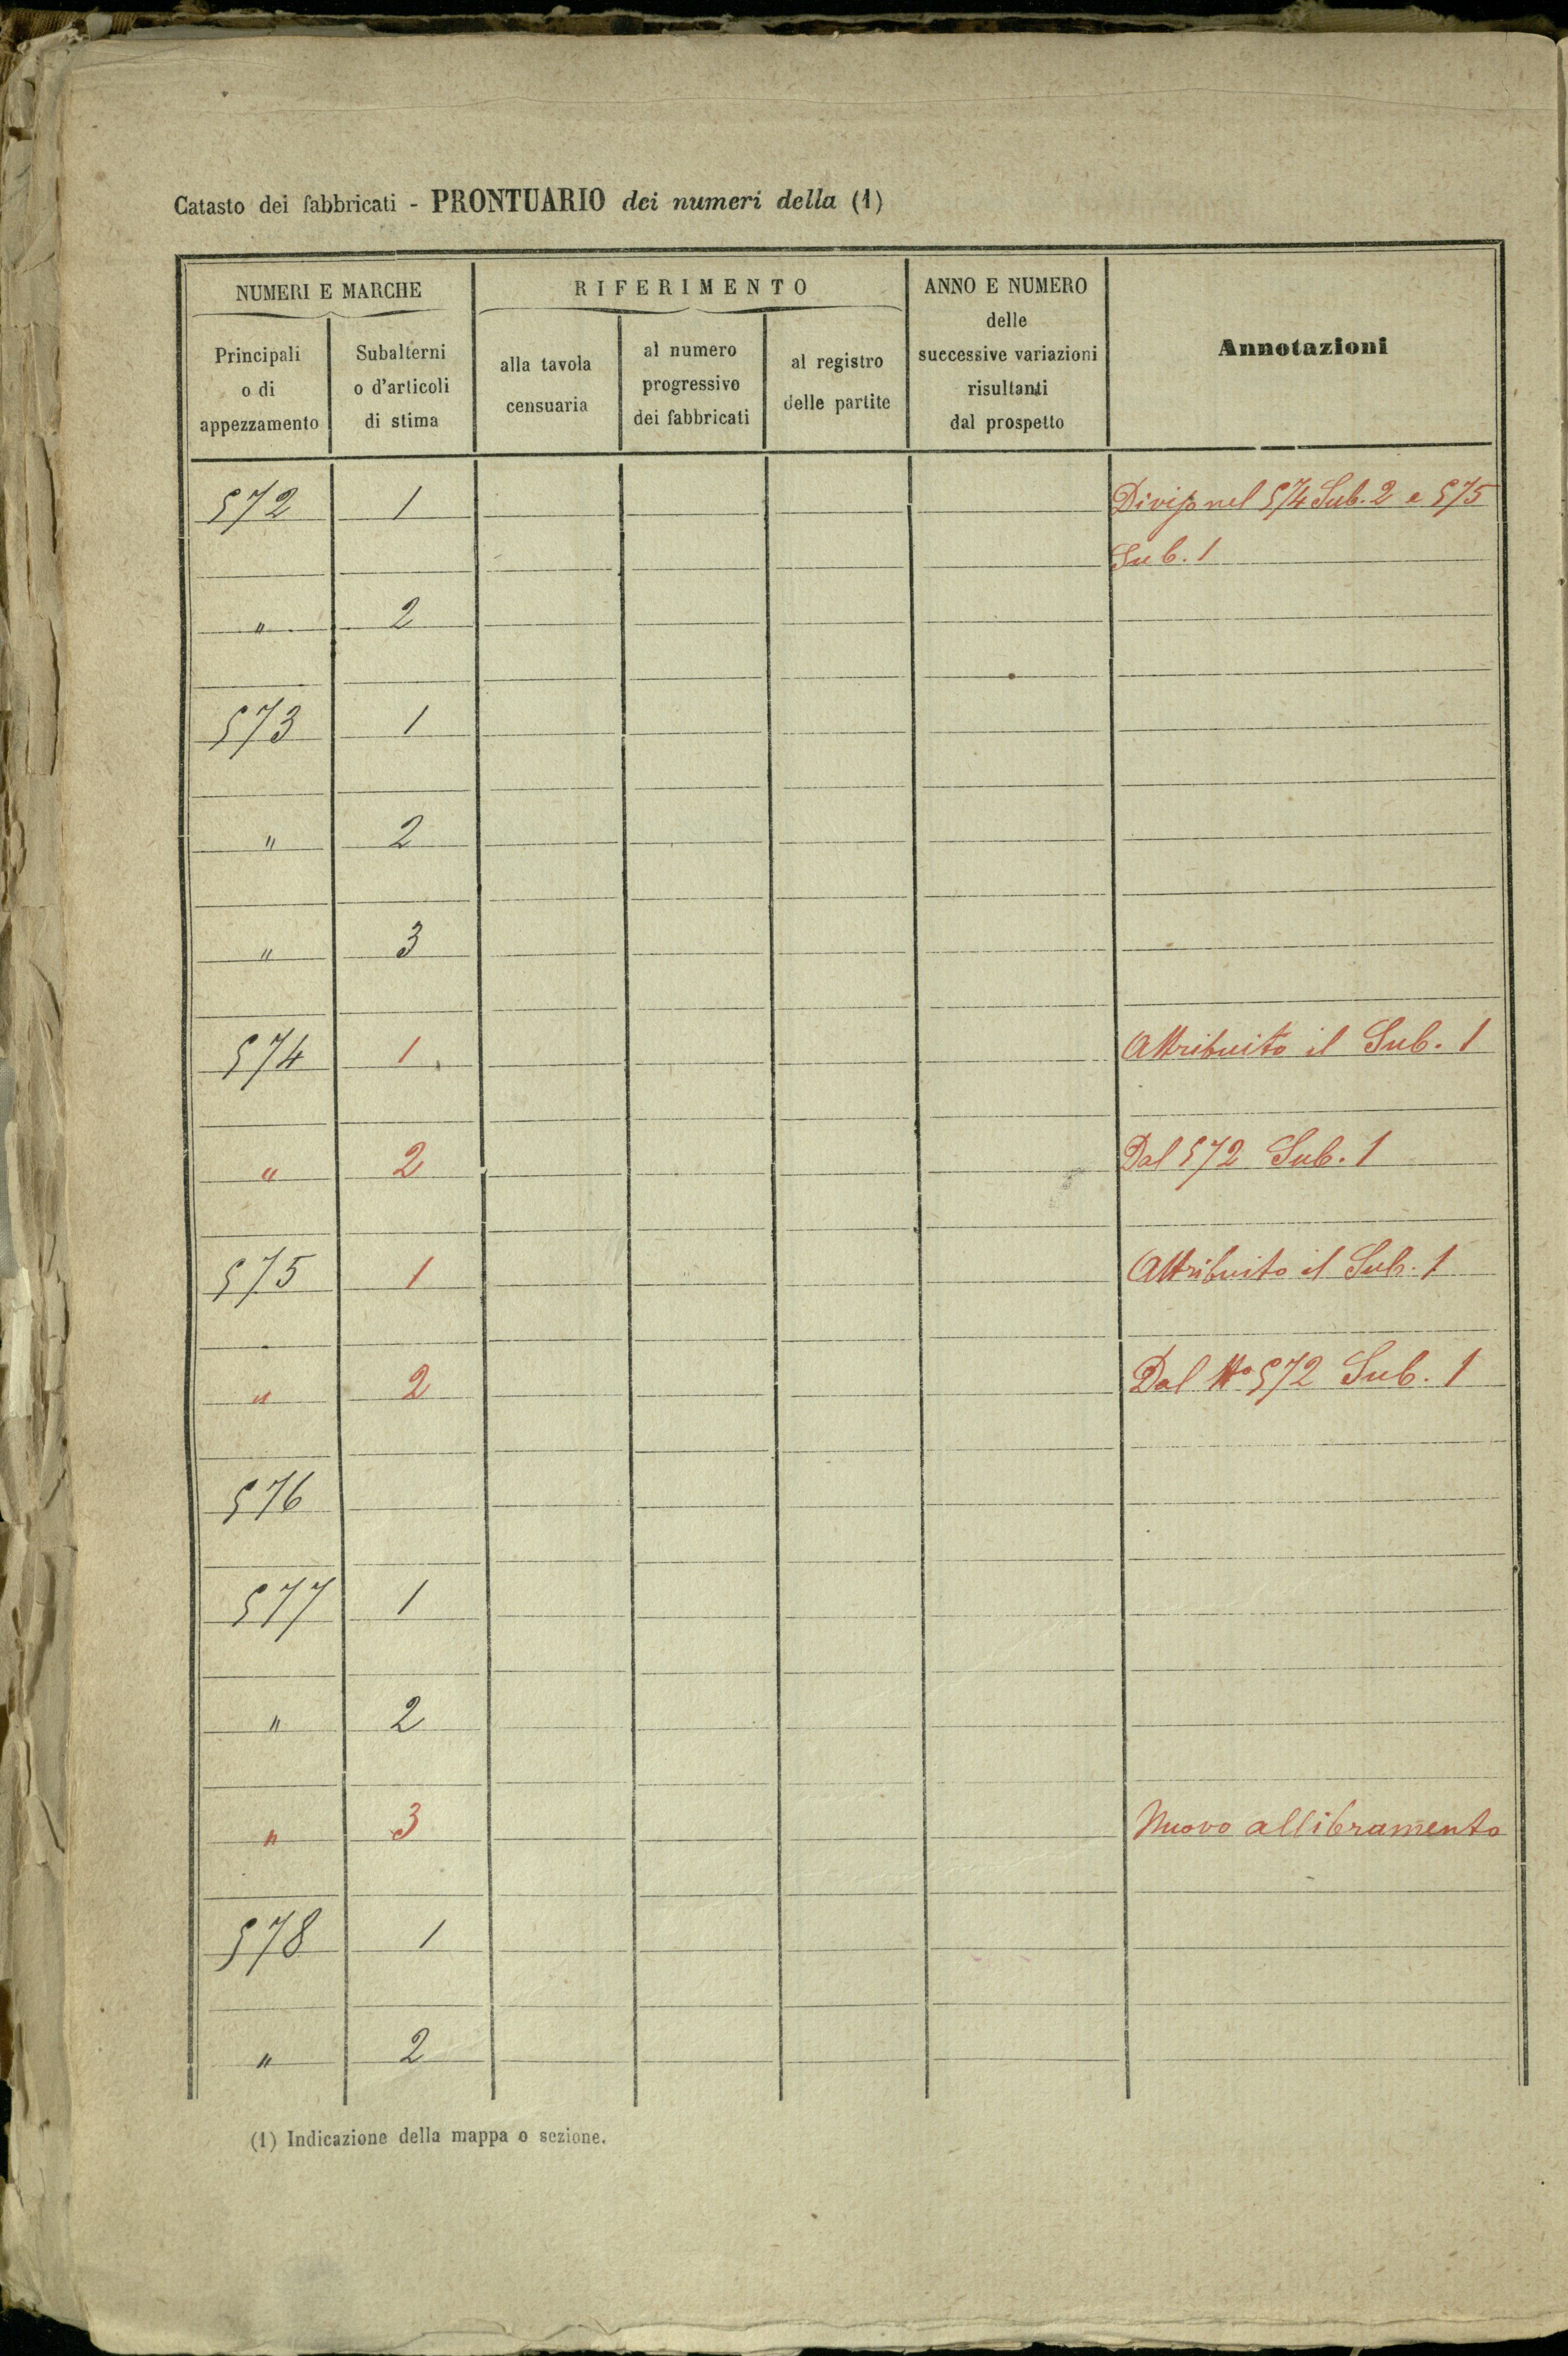 Catasto dei fabbricati - PRONTUARIO dei numeri della (1)
NUMERI E MARCHE
RIFERIMENTO
ANNO E NUMERO
delle
successive variazioni
risultanti
dal prospetto
Annotazioni
Principali
o di
appezzamento
Subalterni
o d'articoli
di stima
alla tavola
censuaria
al numero
progressivo
dei fabbricati
al registro
delle partite
572 1 Diviso nel 574 Sub. 2 e 575
Sub. 1
" 2
573 1
" 2
" 3
574 1 Attribuito il Sub. 1
" 2 Dal 572 Sub. 1
575 1 Attribuito il Sub. 1
" 2 Dal No 572 Sub. 1
576
577 1
" 2
" 3 Nuovo allibramento
578 1
" 2
(1) Indicazione della mappa o sezione.